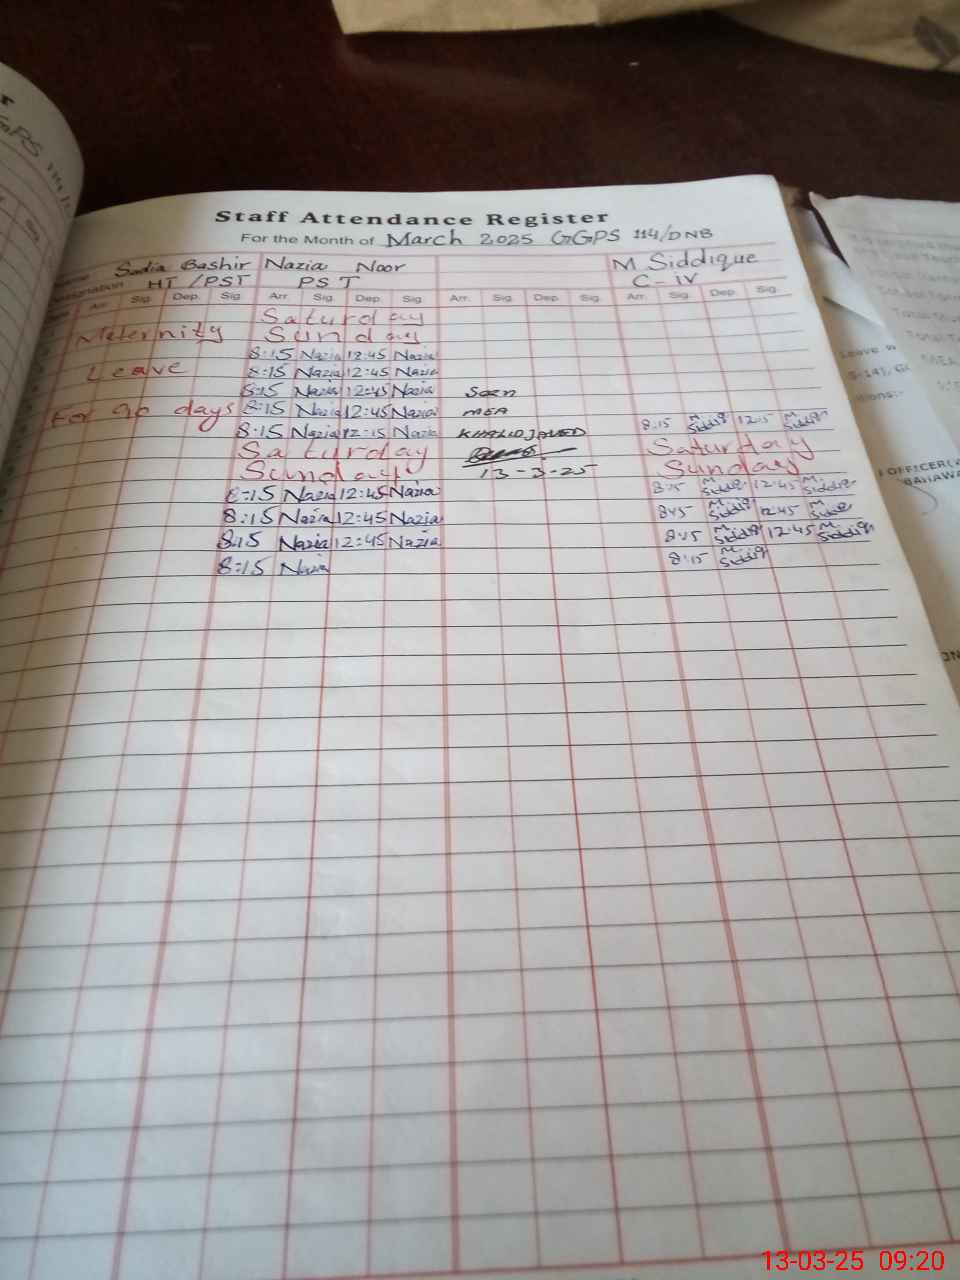 Staff Attendance Register
For the Month of March 2025 GGPS 114/DNB
Sadia Bashir Nazia Noor M. Siddique
Designation HT/PST PST C-iv
Arr. Sig. Dep. Sig. Arr. Sig. Dep. Sig. Arr. Sig. Dep. Sig. Arr. Sig. Dep. Sig.
Saturday
Meternity Sunday
8:15 Nazia 12:45 Nazia
Leave 8:15 Nazia 12:45 Nazia
8:15 Nazia 12:45 Nazia Seen
For 90 days 8:15 Nazia 12:45 Nazia MEA
8:15 Nazia 12:15 Nazia KHALID JAVED 8:15 M. Siddiq 12:15 M. Siddiq
Saturday Saturday
Sunday 13-3-25 Sunday
8:15 Nazia 12:45 Nazia 8:15 M. Siddiq 12:45 M. Siddiq
8:15 Nazia 12:45 Nazia 8:15 M. Siddiq 12:45 M. Siddiq
8:15 Nazia 12:45 Nazia 8:15 M. Siddiq 12:45 M. Siddiq
8:15 Nazia 8:15 M. Siddiq
GGPS 114/
Sig
Leave
MEA
OFFICER
BAHAWA
13-03-25 09:20